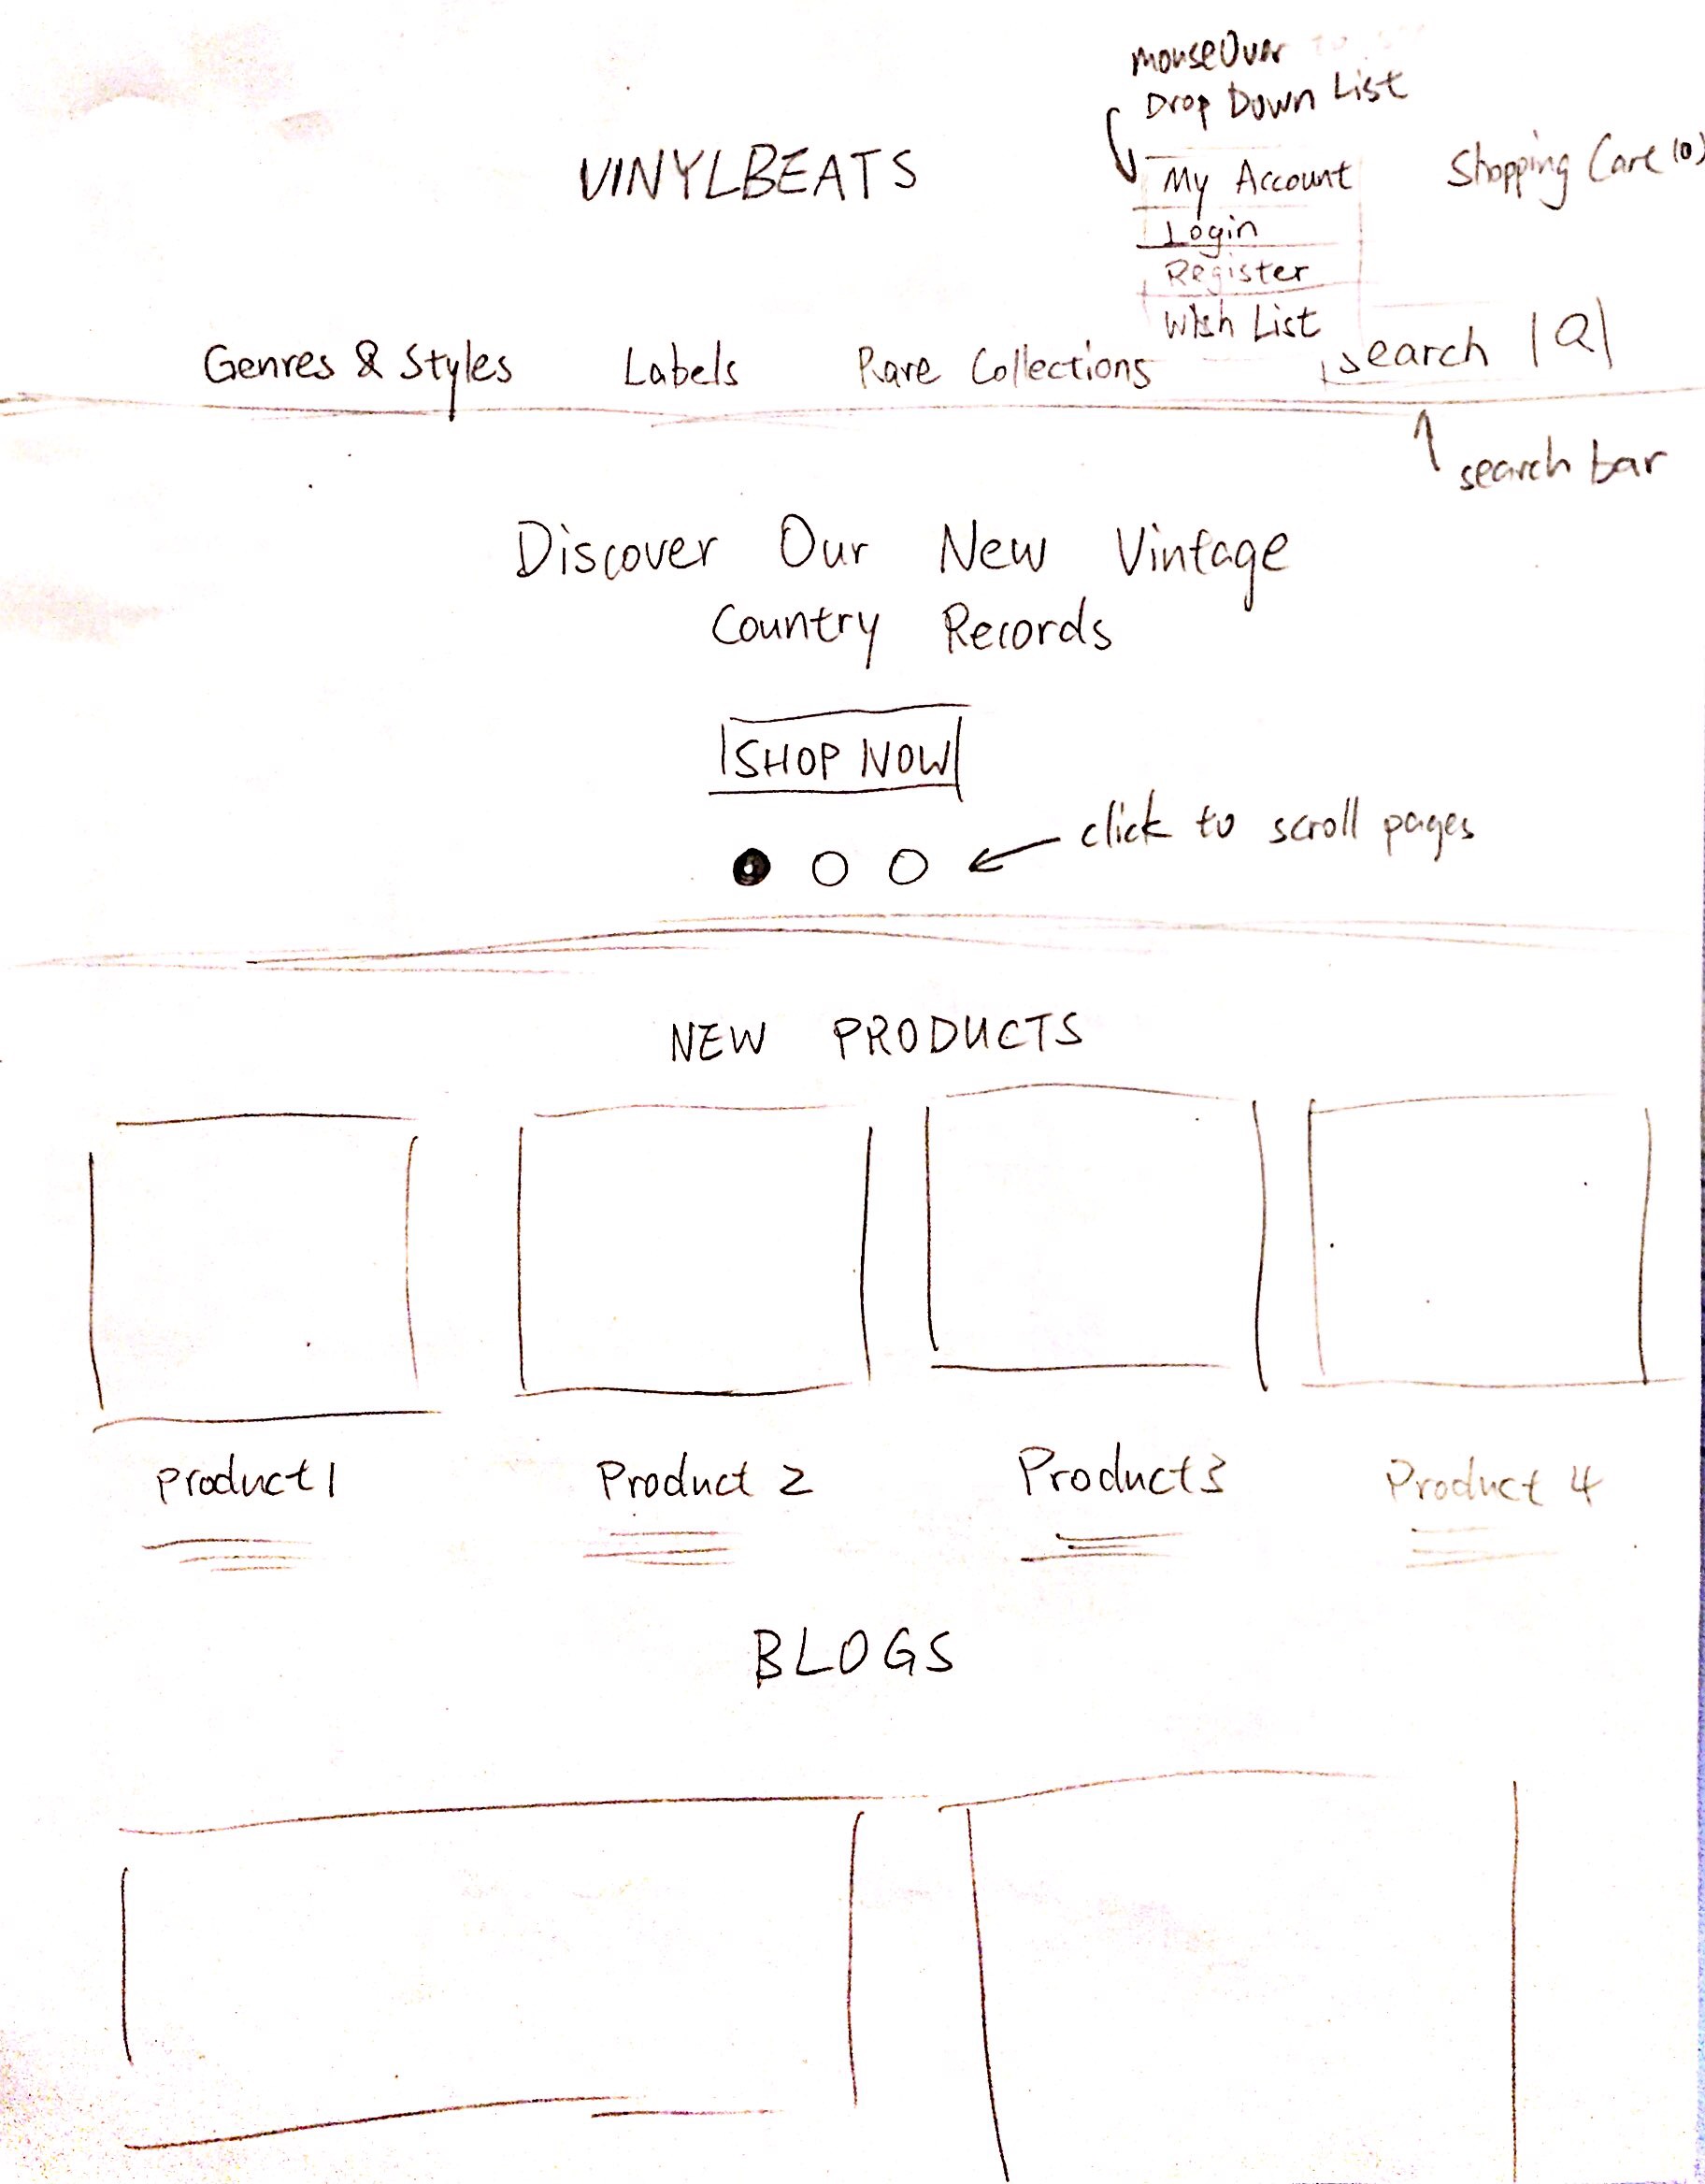 mouseOver
Drop Down List
VINYLBEATS
My Account
Shopping Cart (0)
Login
Register
Wish List
Genres & Styles
Labels
Rare Collections
search |Q|
search bar
Discover Our New Vintage
Country Records
SHOP NOW
click to scroll pages
NEW PRODUCTS
Product 1
Product 2
Product 3
Product 4
BLOGS